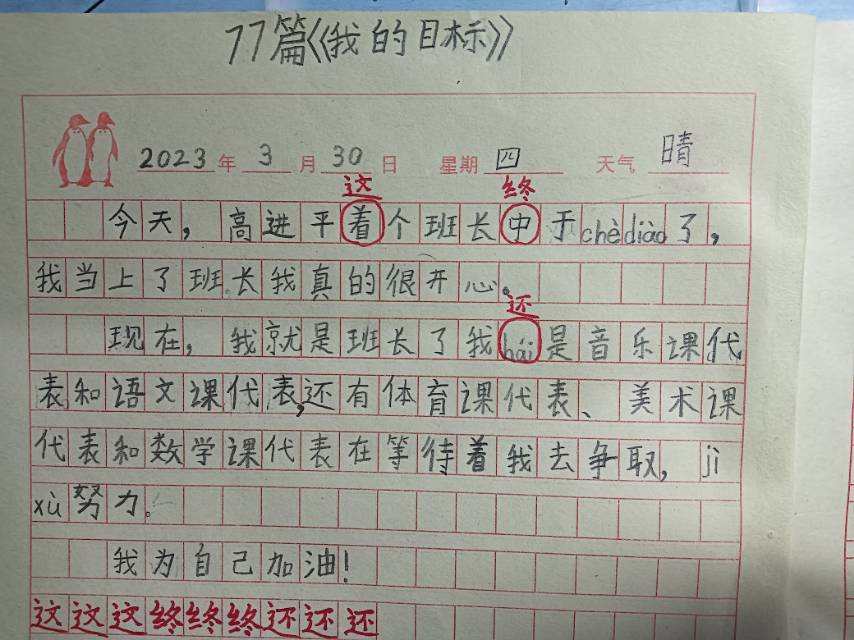 77篇《我的目标》
2023年3月30日 星期四 天气晴
这 终
今天，高进平着个班长中于chèdiào了，
我当上了班长我真的很开心。
还
现在，我就是班长了我hái是音乐课代
表和语文课代表，还有体育课代表、美术课
代表和数学课代表在等待着我去争取，jì
xù努力。
我为自己加油！
这这这终终终还还还